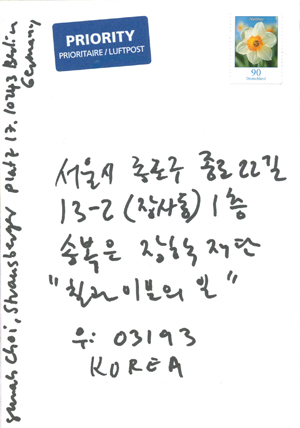 PRIORITY
PRIORITAIRE / LUFTPOST
90
Deutschland
Choi, Strausberger Platz 17. 10243 Berlin
Germany
서울시 종로구 종로22길
13-2 (장사동) 1층
송복은 장학재단
"칠과 이분의 일"
우: 03193
KOREA